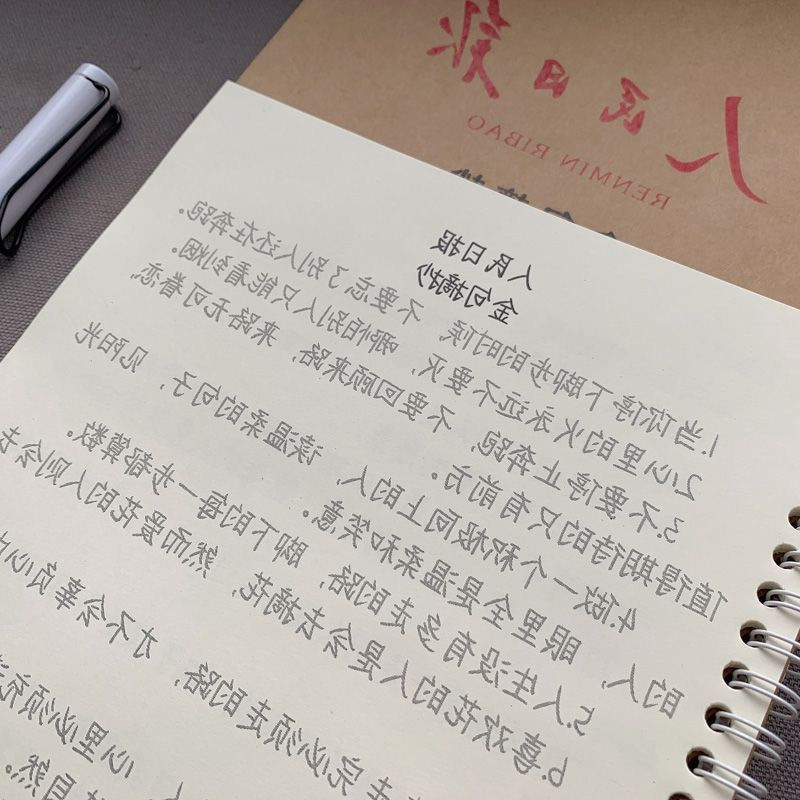 人民日报
RENMIN RIBAO
人民日报
金句摘抄
1.当你停下脚步的时候,不要忘了别人还在奔跑。
2.心里的火永远不要灭,哪怕别人只能看到烟。
3.不要停止奔跑,不要回顾来路,来路无可眷恋
值得期待的只有前方。
4.做一个积极向上的人,读温柔的句子,见阳光
的人,眼里全是温柔和笑意。
5.人生没有多走的路,脚下的每一步都算数。
6.喜欢花的人是会去摘花,然而爱花的人则会去
走完必须走的路,才不会辜负心中
心里必须充
自然。